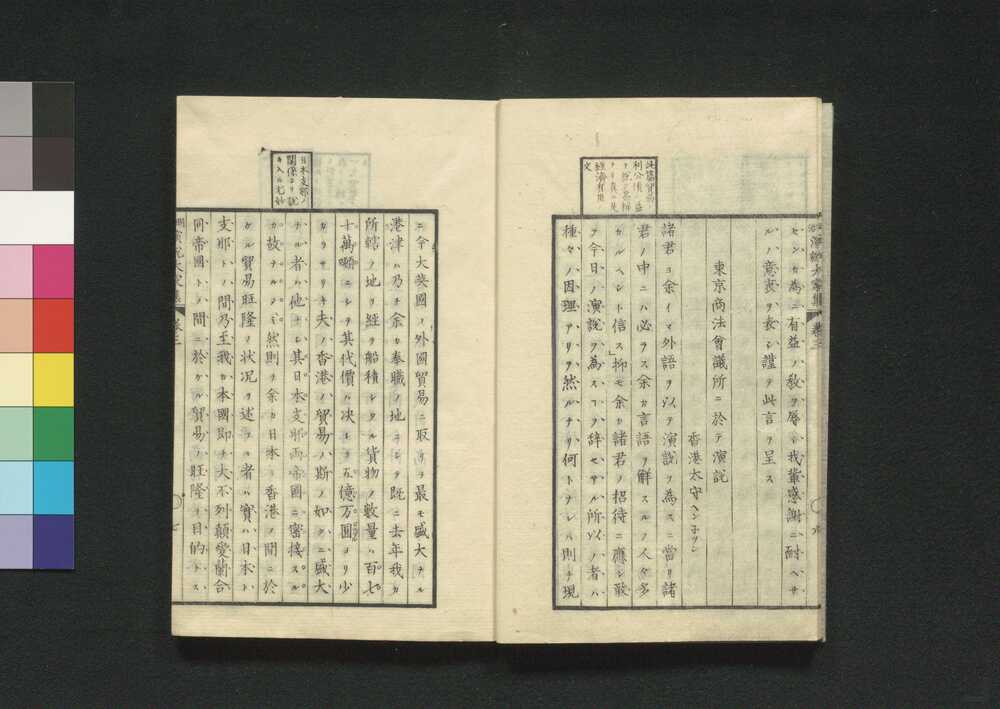 センカ為ニ有益ノ教ヲ辱ウ我輩感謝ニ耐ヘサ
ルノ意衷ヲ表シ謹テ此言ヲ呈ス
東京商法會議所ニ於テ演説
香港太守ヘンネッシ
諸君ヨ余イマ外語ヲ以テ演説ヲ為スニ當リ諸
君ノ中ニハ必ラス余カ言語ヲ解スルノ人々多
カルヘシト信ス」抑モ余カ諸君ノ招待ニ應シ敢
テ今日ノ演説ヲ為スヿヲ辞セサル所以ノ者ハ
種々ノ因理アリヲ然ルナリ何トナレハ則チ現
經濟有用
文
演説大家集 卷三
ニ今大英國ノ外國貿易ニ取リテ最モ盛大ナル
港津ハ乃チ余カ奉職ノ地ニシテ既ニ去年我カ
所轄ノ地ヲ經テ船積シタル貨物ノ數量ハ百七
十萬噸ニシテ其代價ハ决シテ五億万圓ヨリ少
カラサリキ夫ノ香港ノ貿易ハ斯ノ如クニ盛大
ナル者ハ他ナシ其日本支那両帝國ニ密接スル
カ故ナルノミ然則チ余カ日本ト香港ノ間ニ於
ケル貿易旺隆ノ状况ヲ述フル者ハ實ハ日本ト
支那トノ間乃至我カ本國即チ大不列顛愛蘭合
同帝國トノ間ニ於ケル貿易ノ旺隆ヲ目的トス
日本支那ノ
關係ヨリ説
キ入ル尤妙
演説大家集 卷三
七